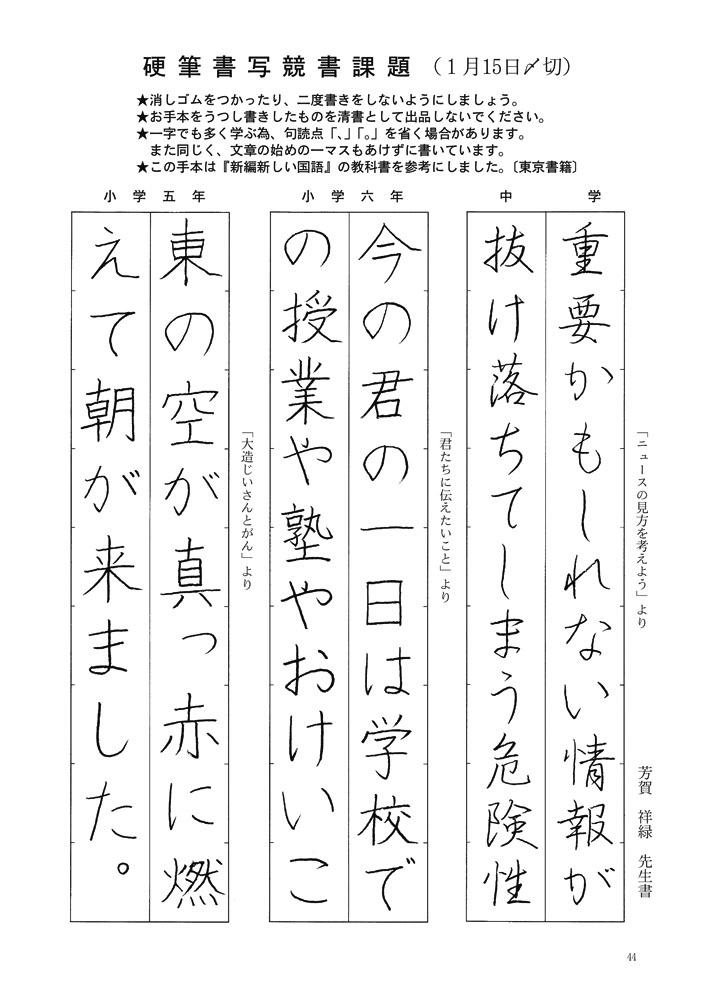 硬筆書写競書課題（１月15日〆切）
★消しゴムをつかったり、二度書きをしないようにしましょう。
★お手本をうつし書きしたものを清書として出品しないでください。
★一字でも多く学ぶ為、句読点「、」「。」を省く場合があります。
また同じく、文章の始めの一マスもあけずに書いています。
★この手本は『新編新しい国語』の教科書を参考にしました。〔東京書籍〕
中学
芳賀 祥緑 先生書
「ニュースの見方を考えよう」より
重要かもしれない情報が
抜け落ちてしまう危険性
小学六年
「君たちに伝えたいこと」より
今の君の一日は学校で
の授業や塾やおけいこ
小学五年
「大造じいさんとがん」より
東の空が真っ赤に燃
えて朝が来ました。
44